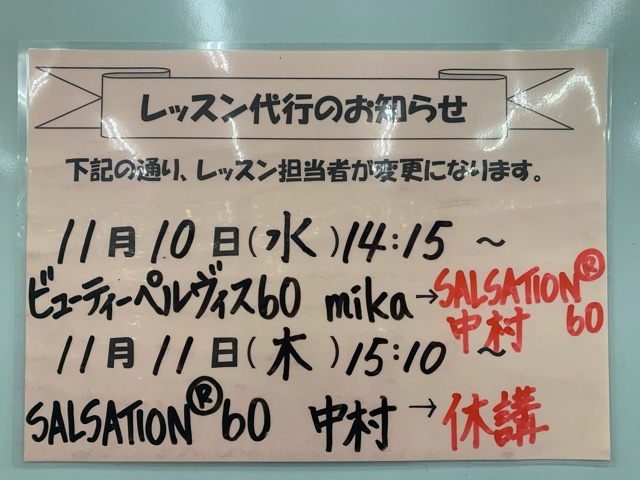 レッスン代行のお知らせ
下記の通り、レッスン担当者が変更になります。
11月10日(水)14:15 ～
ビューティーペルヴィス60 mika→SALSATION®
中村 60
11月11日(木)15:10 ～
SALSATION®60 中村→休講